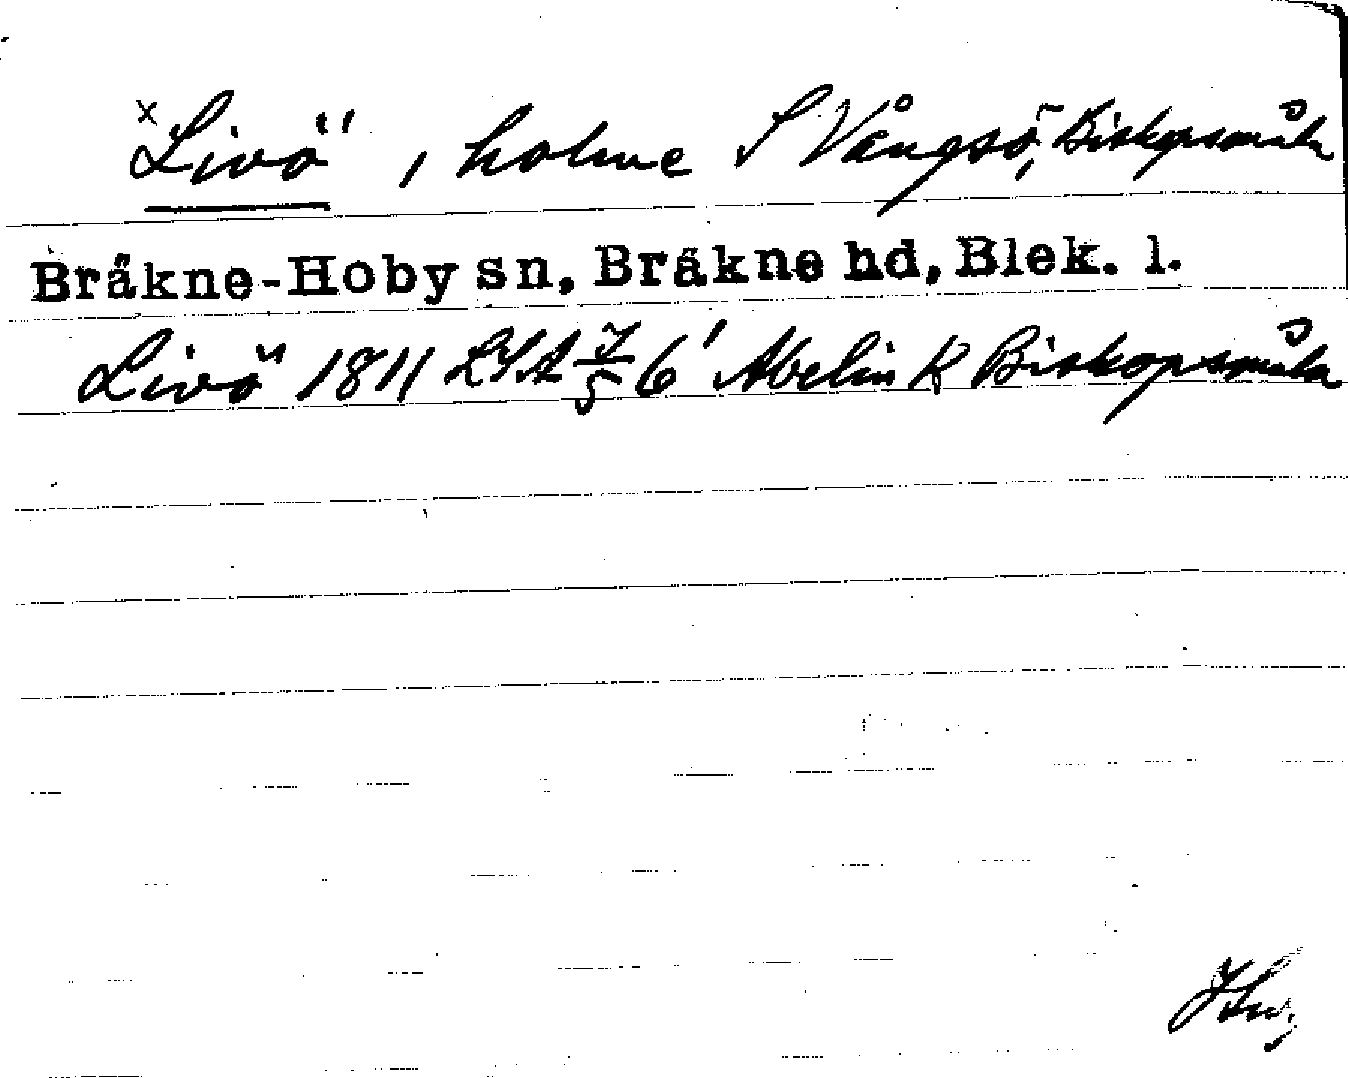 x Livö", holme S Vångsö, Biskopsmåla
Bräkne-Hoby sn, Bräkne hd, Blek. l.
Livö" 1811 LSA 7/5 6' Abelin K Biskopsmåla